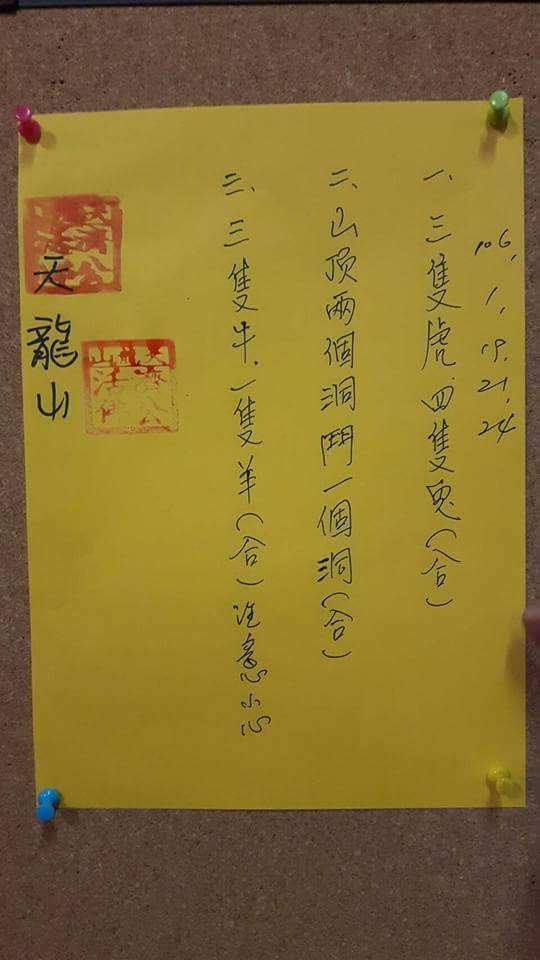 106, 1, 19, 21, 24
一、三隻虎、四隻兔(合)
二、山顶兩個洞鬥一個洞(合)
三、三隻牛、一隻羊(合)注意小心
天龍山